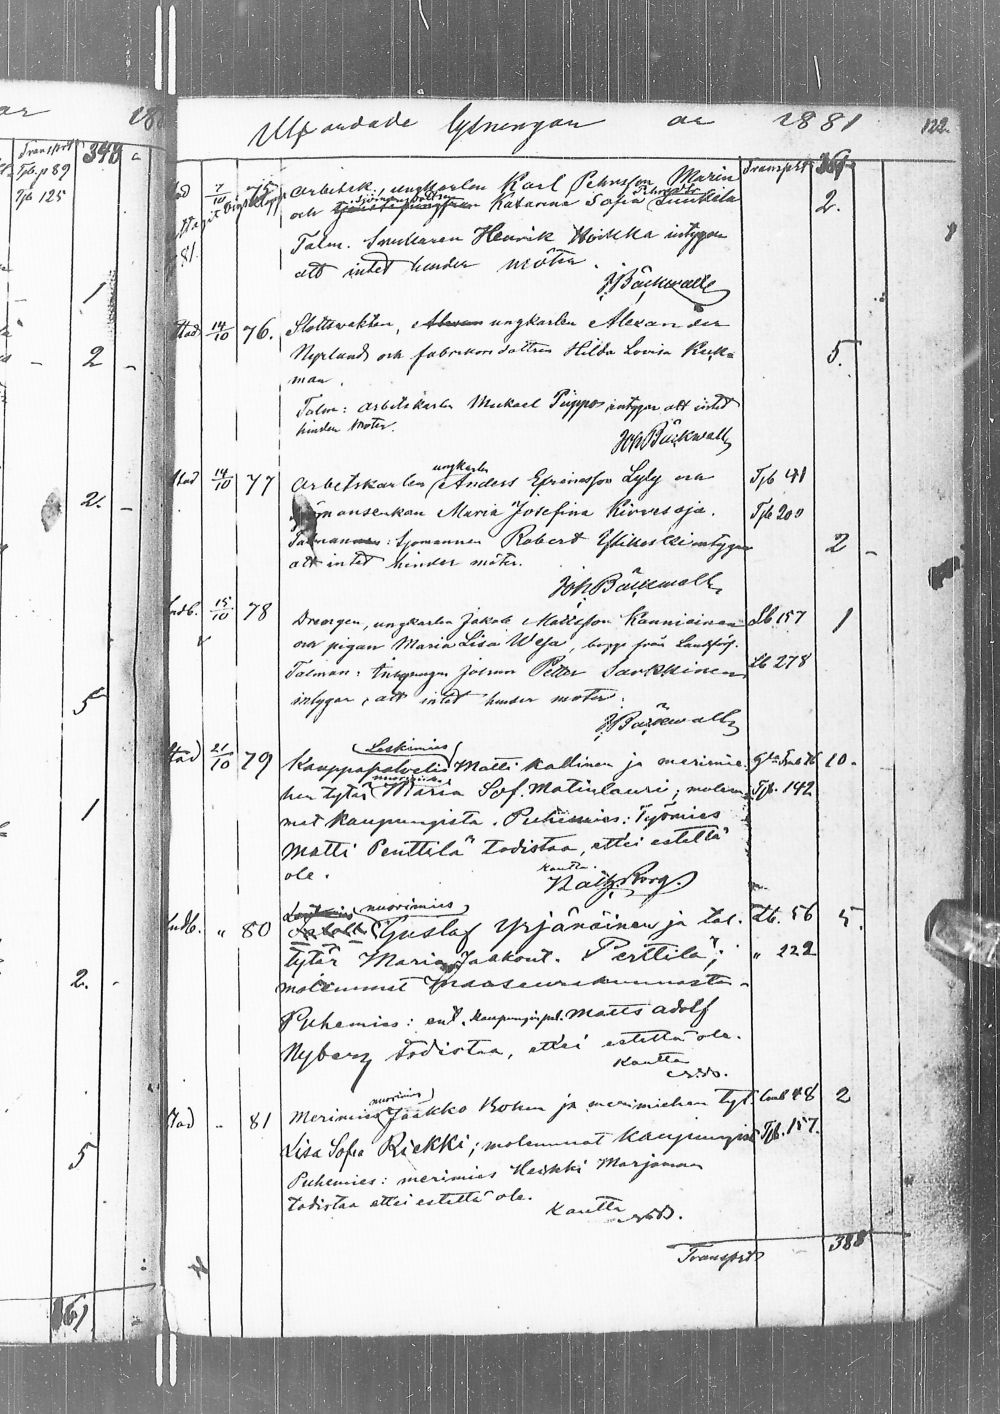 ar 188
Transport 348
Tpb. p 89
Tpb 125
1
2 -
2. -
5
1
2. -
5
361
Utfärdade lysningar år 1881 122.
Transport 361
Stad 7/10 75 Arbetsk. ungkarlen Karl Pehrsson Marin 2.
och Sjömansdottren Katarina Sofia Pehrsdr
81.
Talm. Snickaren Henrik intygar
att intet hinder möter.
J Bäckwall
Stad 14/10 76. Slottsvakten, ungkarlen Alexander
Nyelund och fabrikörsdottren Hilda Lovisa Keck= 5.
man.
Talm: Arbetskarlen Mickael Puippo, intygar att intet
hinder möter.
Joh Bäckwall
Stad 14/10 77 Arbetskarlen ungkarlen Anders Efraimsson Lyly och Tpb 41
sjömansenkan Maria Josefina Kirvesoja. Tpb 200
Talman: Sjömannen Robert Ylikoski intygar 2 -
att intet hinder möter.
Joh Bäckwall
Landb. 15/10 78 Drengen, ungkarlen Jakob Mattsson Kanniainen Lb. 157 1
och pigan Maria Lisa Wesa, begge från Landsförs.
Talman: Petter Sarkkinen Lb 278
intygar, att intet hinder möter.
J Bäckwall
Stad 21/10 79 Kauppapalvelia Leskimies Matti Kallinen ja merimie- 10.
hen tytär Maria Sof. Matinlauri; molem- Tpb. 142
mat kaupungista. Puhemies: Työmies
Matti Penttilä todistaa, ettei estettä
ole.
kautta
Borg.
Landb. " 80 nuorimies Gustaf Yrjänäinen ja tal. Lb. 56 5.
tytär Maria Jaakont. Perttilä; " 222
molemmat maaseurakunnasta.
Puhemies: ent. kaupunginpal. Matts Adolf
Nyberg todistaa, ettei estettä ole.
kautta
Stad " 81 Merimies nuorimies Jaakko Kohen ja merimiehen tyt. 48 2
Lisa Sofia Riekki; molemmat kaupungist. Tpb. 157.
Puhemies: merimies Heikki Marjamaa
todistaa ettei estettä ole.
kautta
Transport 388